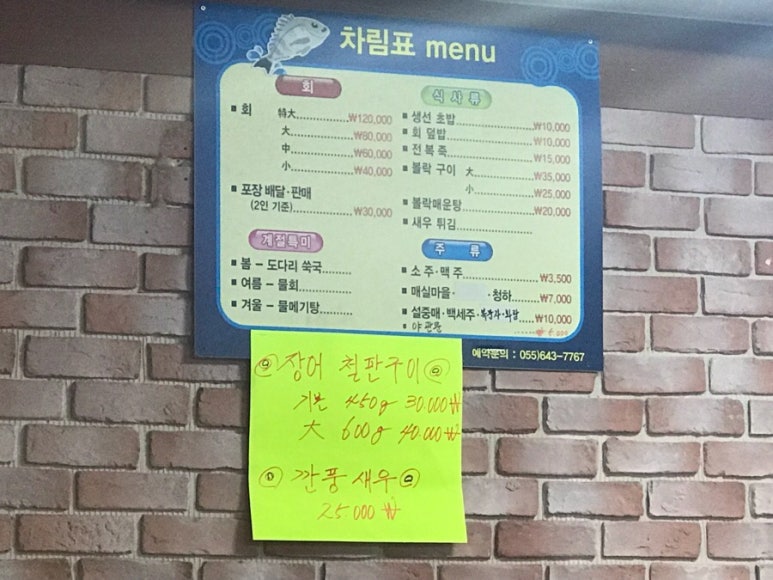 차림표 menu
회
회 特大 ₩120,000
大 ₩80,000
中 ₩60,000
小 ₩40,000
포장 배달·판매
(2인 기준) ₩30,000
계절특미
봄 - 도다리 쑥국
여름 - 물회
겨울 - 물메기탕
식사류
생선 초밥 ₩10,000
회 덮밥 ₩10,000
전복죽 ₩15,000
볼락 구이 大 ₩35,000
小 ₩25,000
볼락매운탕 ₩20,000
새우 튀김
주 류
소 주·맥 주 ₩3,500
매실마을· ·청하 ₩7,000
설중매·백세주·복분자·화랑 ₩10,000
야관문
예약문의 : 055)643-7767
장어 철판구이
기본 450g 30.000₩
大 600g 40.000₩
깐풍새우
25.000 ₩